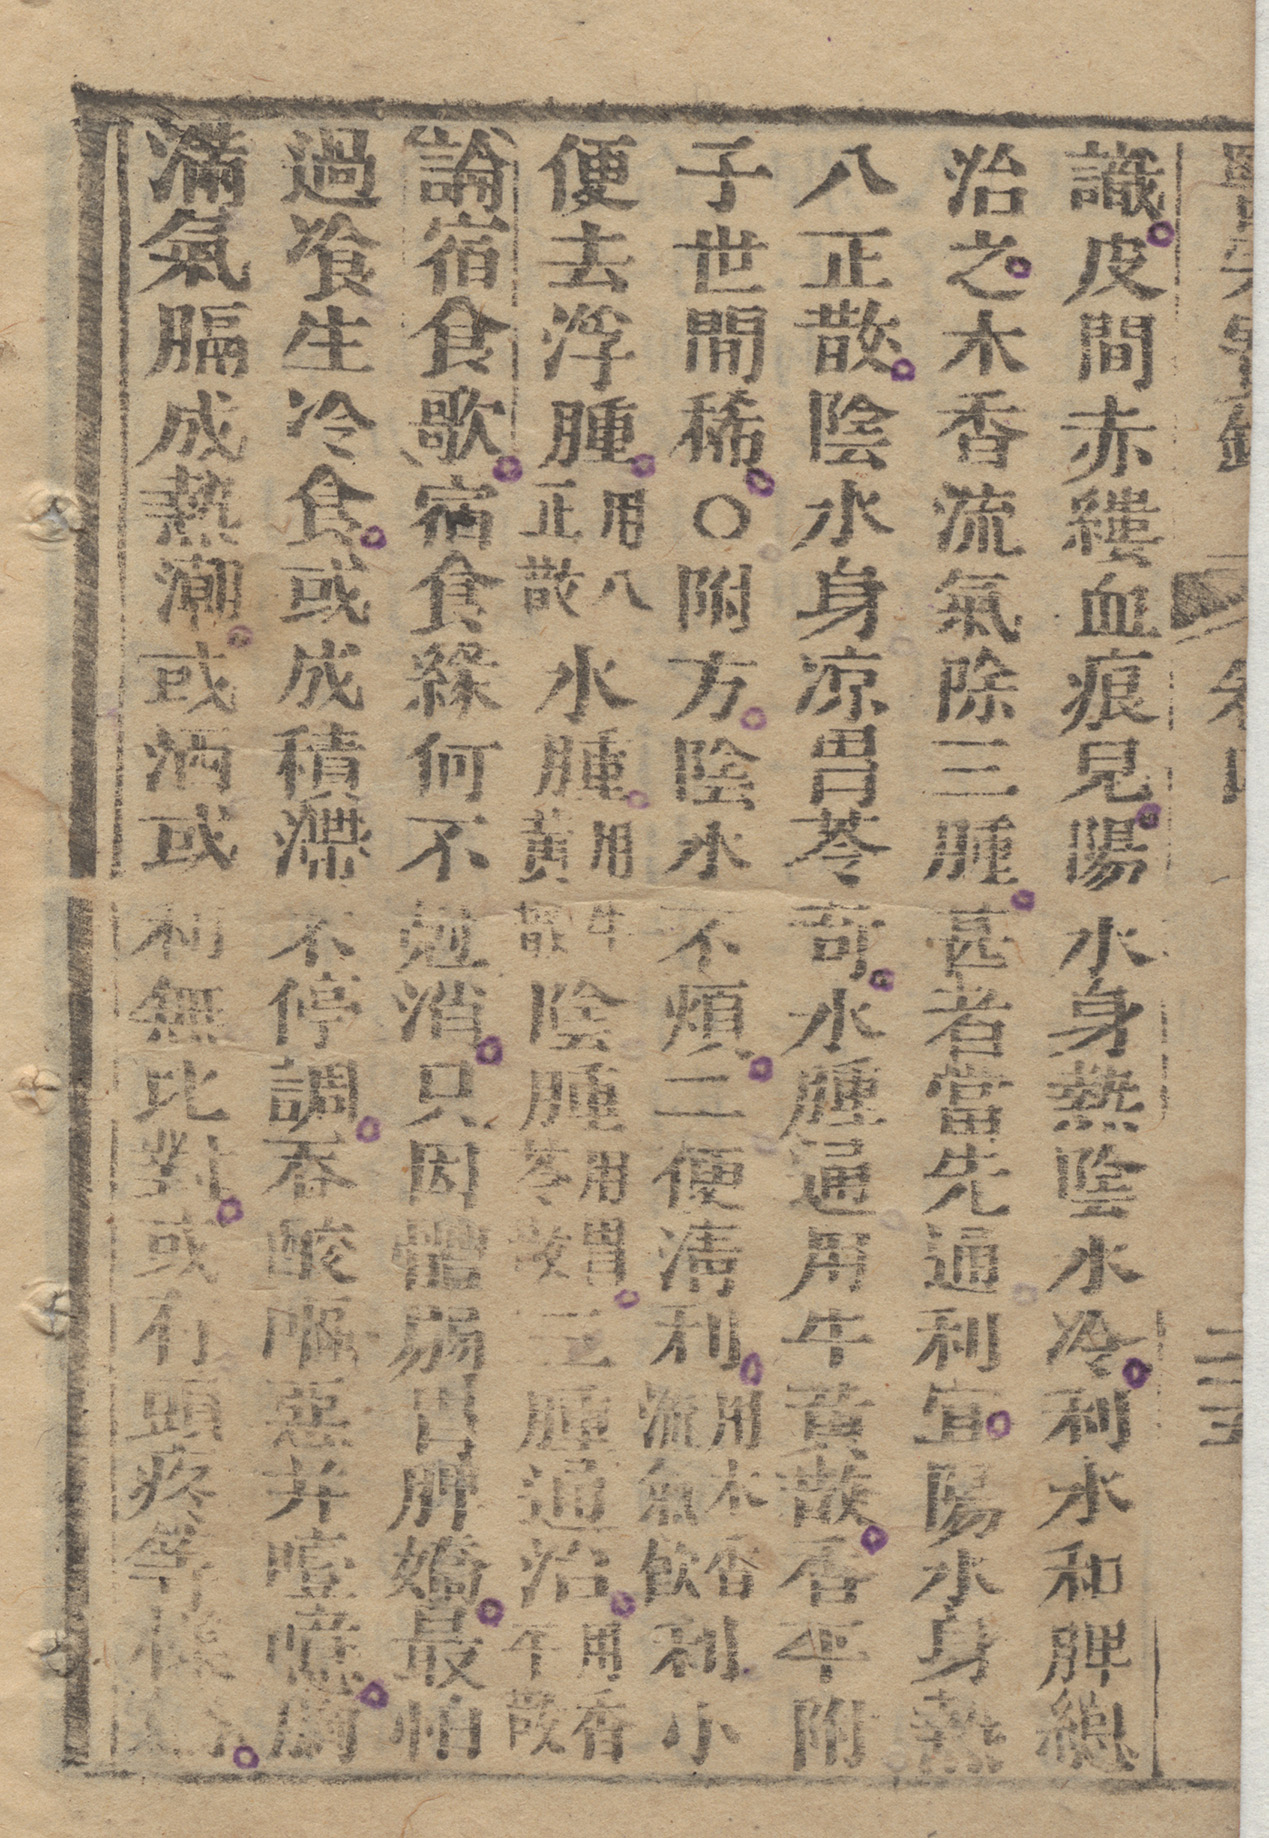 識皮間赤縷血痕見陽水身熱陰水冷利水和脾總
治之木香流氣除三腫甚者當先通利宜陽水身熱
八正散陰水身凉胃苓竒水腫通用牛黃散香平附
子世間稀〇附方陰水不煩二便清利用木香流氣飲利小
便去浮腫用八正散水腫用牛黃散陰腫用胃苓散三腫通治用香平散
論宿食歌宿食縁何不尅消只因體弱胃脾嬌最怕
過飡生冷食或成積滯不停調吞酸嘔惡并噎噫
滿氣膈成熱潮或渮或利無比對或有頭疼等様